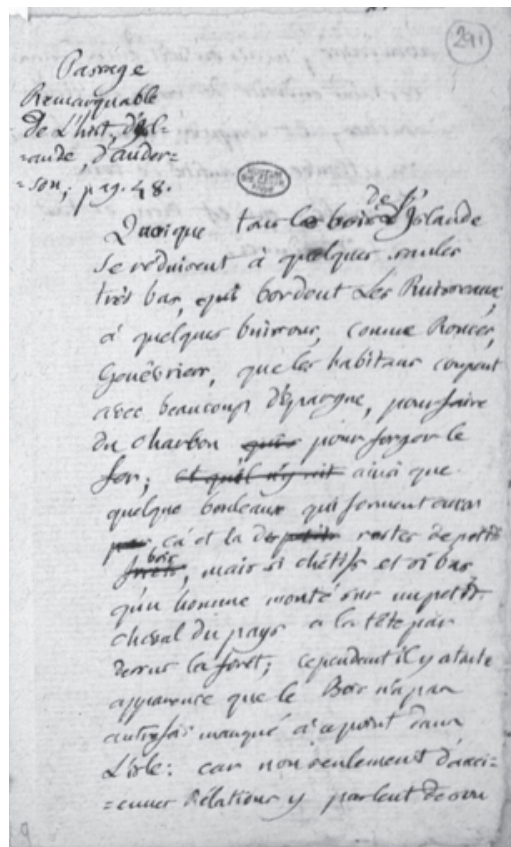 291
Passage
Remarquable
de L'hist. d'Isl-
-ande d'ander-
-son; pag. 48.
Quoique tous les bois d'Islande
se reduisent à quelques saules
très bas, qui bordent Les Ruisseaux,
à quelques buissons, comme Ronces,
Genêvriers, que les habitans coupent
avec beaucoup d'épargne, pour faire
du charbon pour forger le
fer; et qu'il n'y ait ainsi que
quelque bouleaux qui forment
çà et la des restes de petits
bois, mais si chétifs et si bas
qu'un homme monté sur un petit
cheval du pays a la tête par
dessus la forêt; cependant il y a toute
apparence que le Bois n'a pas
autrefois manqué à ce point dans
L'isle: car non seulement d'anci-
=ennes Rélations y parlent de